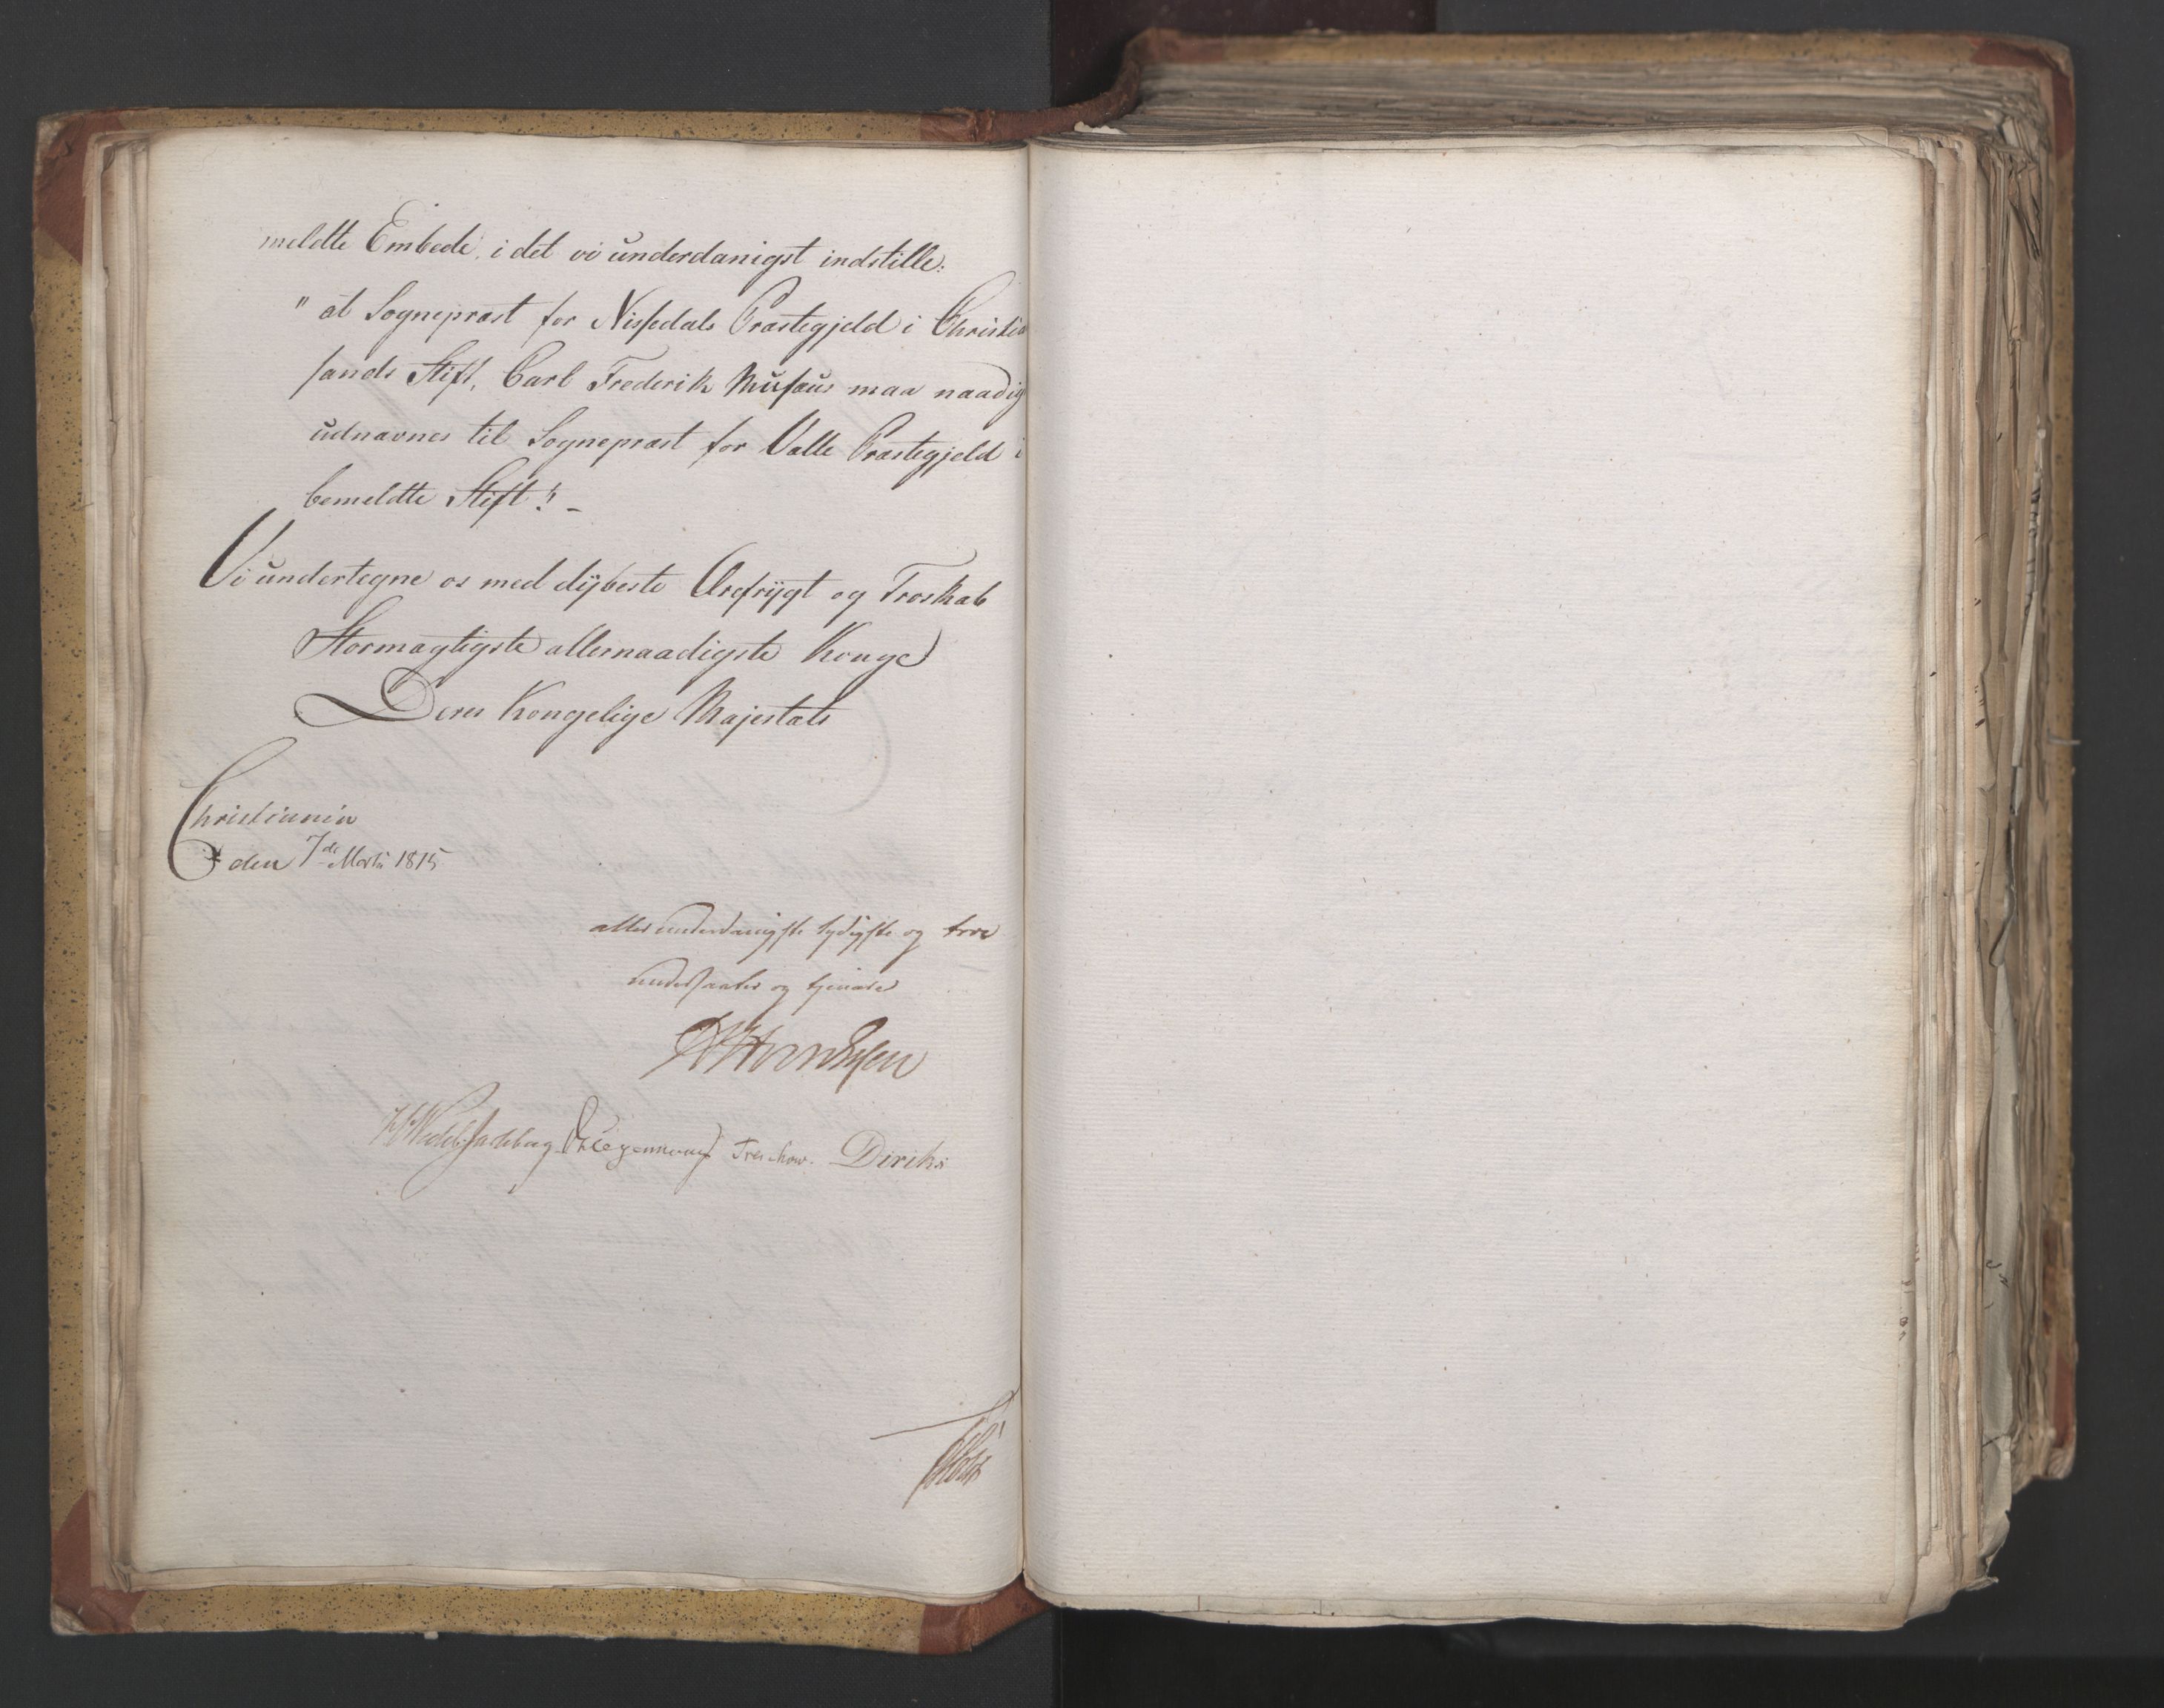 meldte Embede, i det vi underdanigst indstille:
"at Sognepræst for Nissedals Præstegjeld i Christian
sands Stift, Carl Frederik Musæus maa naadigst
udnævnes til Sognepræst for Valle Præstegjeld i
bemeldte Stift". -
Vi undertegne os med dÿbeste Ærefrÿgt og Troskab
Stormægtigste allernaadigste Konge
Deres Kongelige Majestæts
Christiania
den 7de Marts 1815
allerunderdanigste lydigste og troe
undersaatter og tjenere
Wedel Jarlsberg Treschow. Diriks